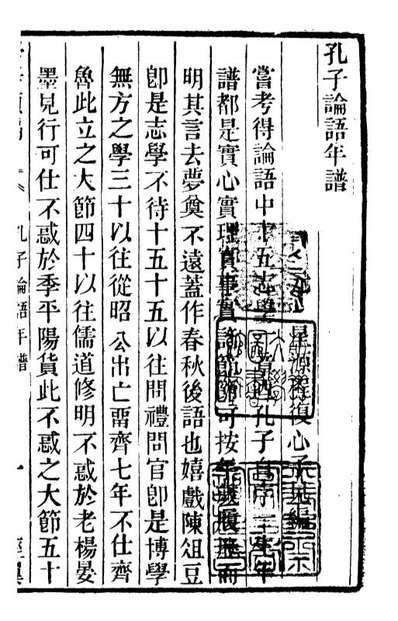 孔子論語年譜
星源 復心子 編
嘗考得論語中十五志學一章孔子自序 年
譜都是實心實理真事實 節節可按年 而
明其言去夢奠不遠蓋作春秋後語也嬉戲陳俎豆
卽是志學不待十五十五以往問禮問官卽是博學
無方之學三十以往從昭公出亡畱齊七年不仕齊
魯此立之大節四十以往儒道修明不惑於老楊晏
墨見行可仕不惑於季平陽貨此不惑之大節五十
孔子論語年譜 一